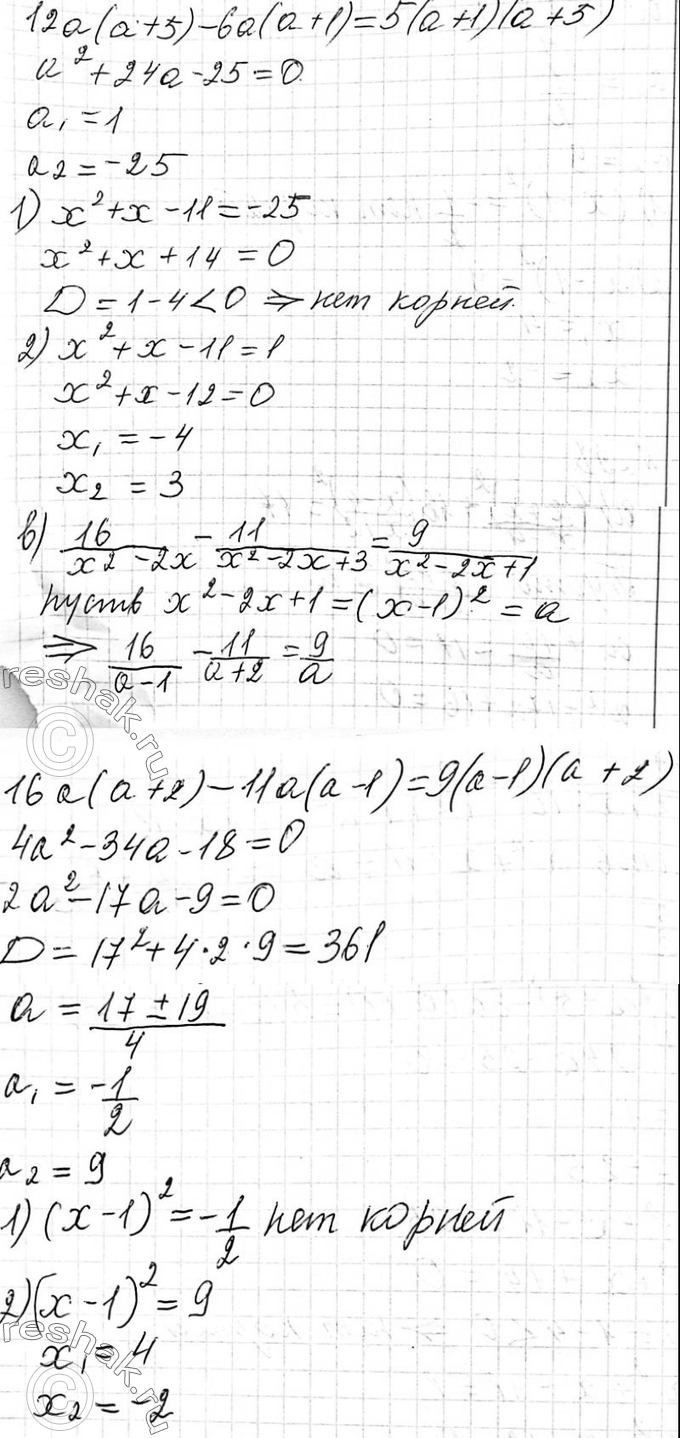 12a(a+5)-6a(a+1)=5(a+1)(a+5)
a²+24a-25=0
a₁=1
a₂=-25
1) x²+x-11=-25
x²+x+14=0
D=1-4<0 ⇒ нет корней.
2) x²+x-11=1
x²+x-12=0
x₁=-4
x₂=3
в) 16/(x²-2x) - 11/(x²-2x+3) = 9/(x²-2x+1)
пусть x²-2x+1=(x-1)²=a
⇒ 16/(a-1) - 11/(a+2) = 9/a
reshak.ru
©
16a(a+2)-11a(a-1)=9(a-1)(a+2)
4a²-34a-18=0
2a²-17a-9=0
D=17²+4·2·9=361
a=(17±19)/4
a₁=-1/2
a₂=9
1) (x-1)²=-1/2 нет корней
2) (x-1)²=9
x₁=4
x₂=-2
reshak.ru
©